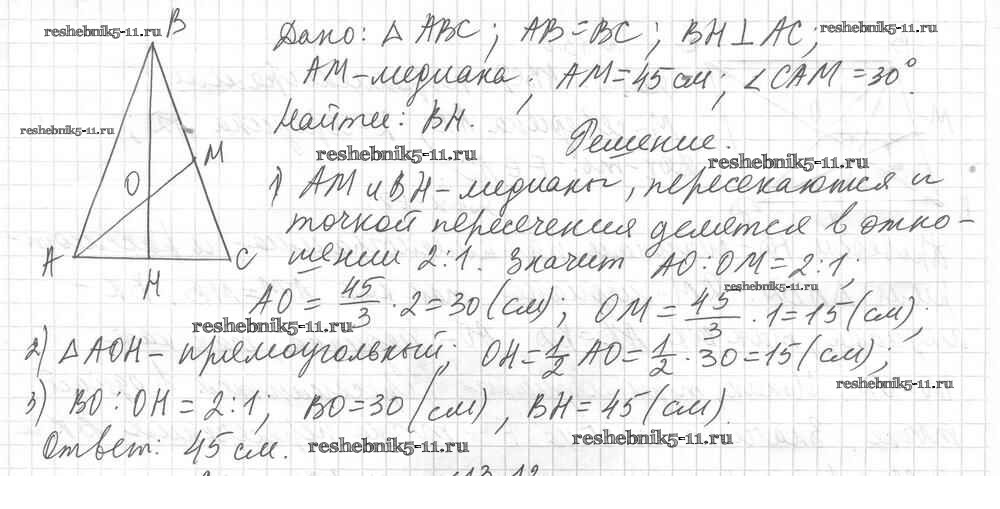 reshebnik5-11.ru
B
Дано: △ ABC; AB=BC; BH⊥AC,
reshebnik5-11.ru
AM-медиана; AM=45 см; ∠CAM=30°.
reshebnik5-11.ru
Найти: BH.
M
reshebnik5-11.ru
Решение.
O
reshebnik5-11.ru
1) AM и BH-медианы, пересекаются и
точкой пересечения делятся в отно-
A
C
H
шении 2:1. Значит AO:OM=2:1;
reshebnik5-11.ru
AO = 45/3 · 2=30(см); OM = 45/3 · 1=15(см);
reshebnik5-11.ru
2) △AOH- прямоугольный; OH=1/2 AO=1/2 · 30=15(см);
reshebnik5-11.ru
3) BO:OH=2:1; BO=30(см), BH=45(см)
Ответ: 45 см.
reshebnik5-11.ru
reshebnik5-11.ru